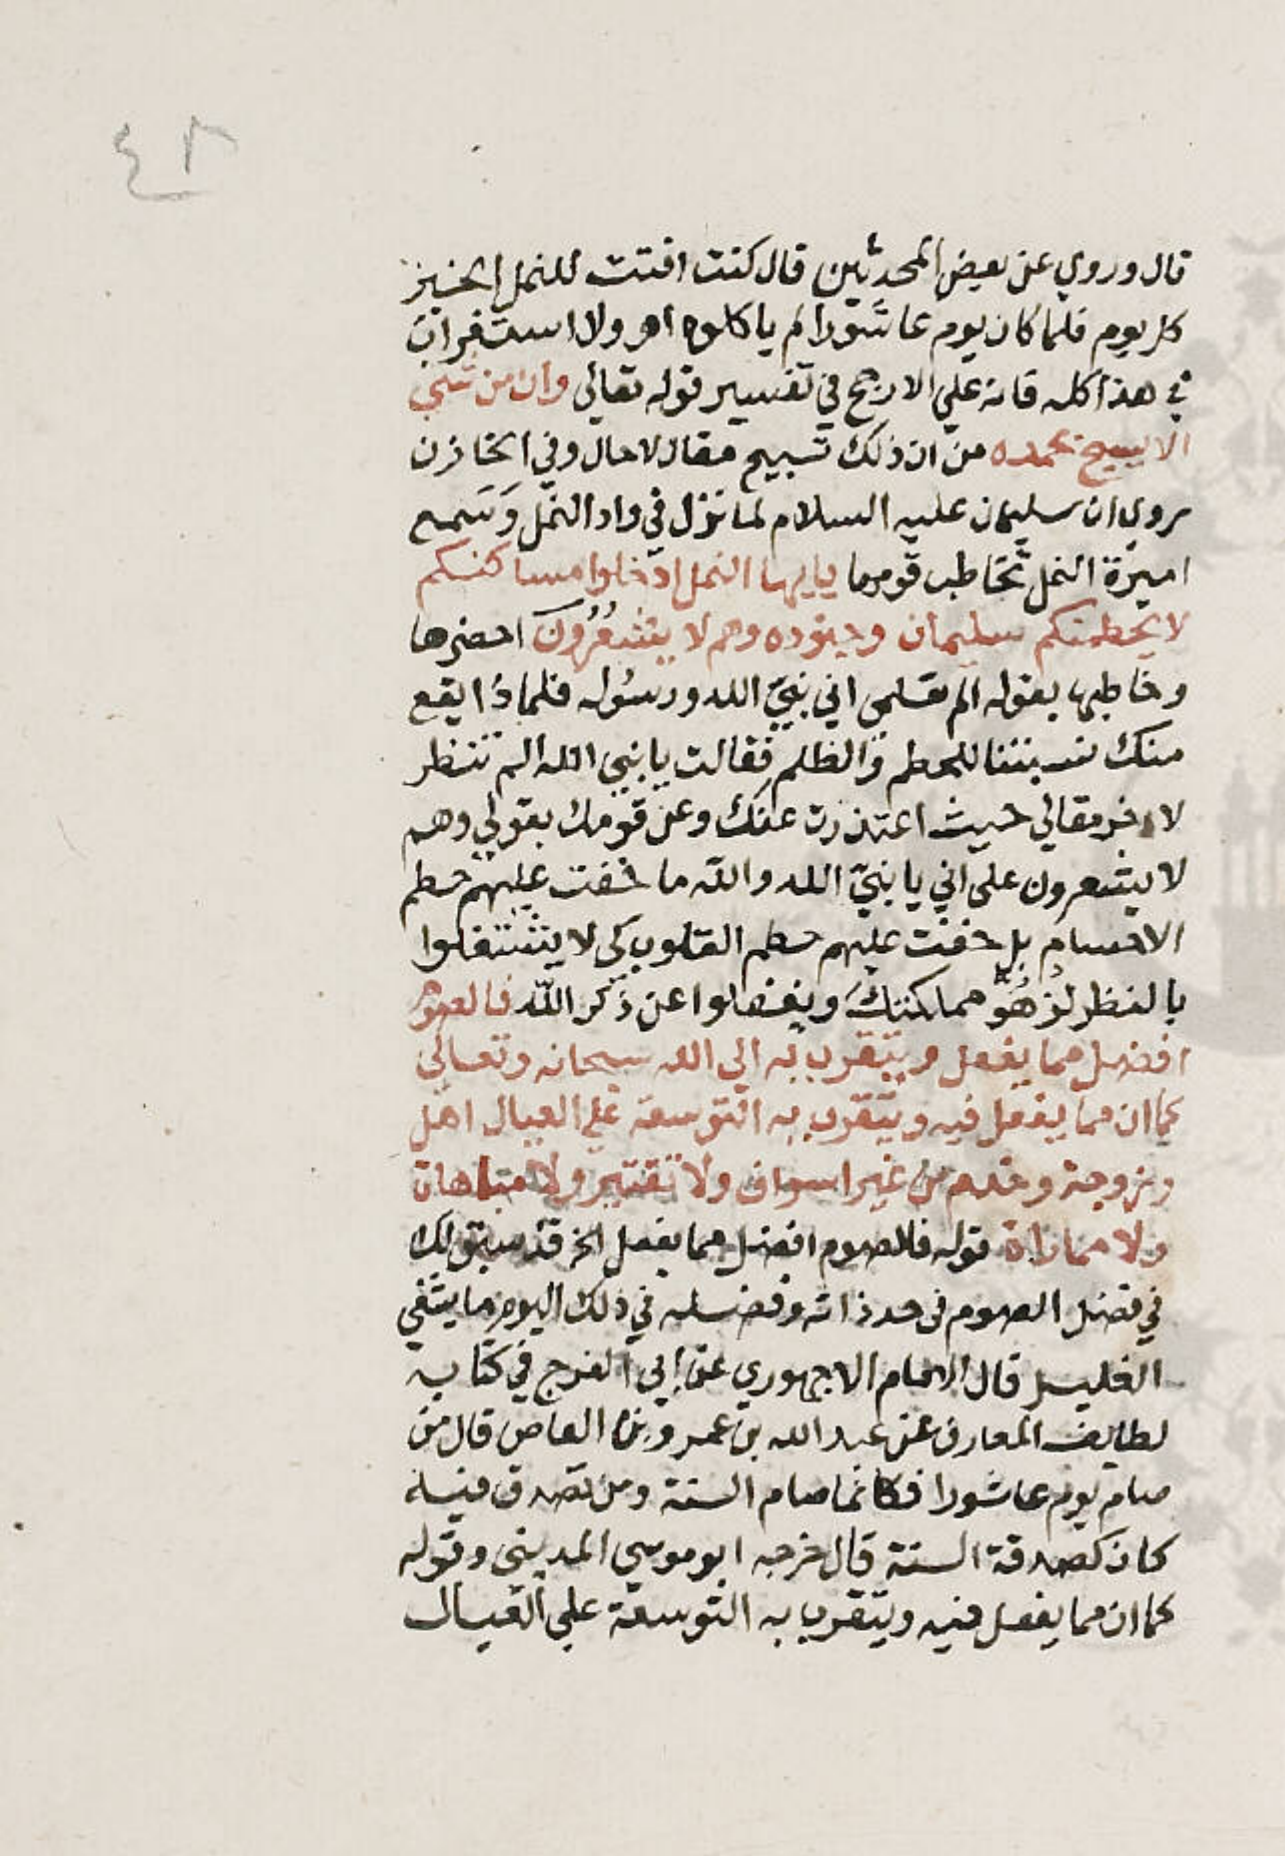 ٤٣
قال وروي عن بعض المحدثين قال كنت افتت للنمل الخبز
كل يوم فلما كان يوم عاشورا لم ياكلوه اهـ ولا استغراب
في هذا كله فانه علي الارجح في تفسير قوله تعالي وان من شي
الا يسبح بحمده من ان ذلك تسبيح مقال لا حال وفي الخازن
روي ان سليمان عليه السلام لما نزل في واد النمل وسمع
اميرة النمل تخاطب قومها يايها النمل ادخلوا مساكنكم
لا يحطمنكم سليمان وجنوده وهم لا يشعرون احضرها
وخاطبها بقوله الم تعلمي اني نبي الله ورسوله فلماذا يقع
منك نسبتنا للحطم والظلم فقالت يا نبي الله الم تنظر
لاخر مقالي حيث اعتذرت عنك وعن قومك بقولي وهم
لا يشعرون علي اني يا نبي الله والله ما خفت عليهم حطم
الاجسام بل خفت عليهم حطم القلوب كي لا يشتغلوا
بالنظر لزهو مملكتك ويغفلوا عن ذكر الله فالصوم
افضل مما يفعل ويتقرب به الي الله سبحانه وتعالي
كما ان مما يفعل فيه ويتقرب به التوسعة علي العيال اهل
وزوجة وخدم من غير اسراف ولا تقتير ولا مباهاة
ولا مماراة قوله فالصوم افضل مما يفعل الخ قد سبق لك
في فضل الصوم في حد ذاته وفضله في ذلك اليوم ما يشفي
الغليل قال الامام الاجهوري عن ابي الفرج في كتابه
لطايف المعارف عن عبد الله بن عمرو بن العاص قال من
صام يوم عاشورا فكانما صام السنة ومن تصدق فيه
كان كصدقة السنة قال خرجه ابو موسي المديني وقوله
كما ان مما يفعل فيه ويتقرب به التوسعة علي العيال